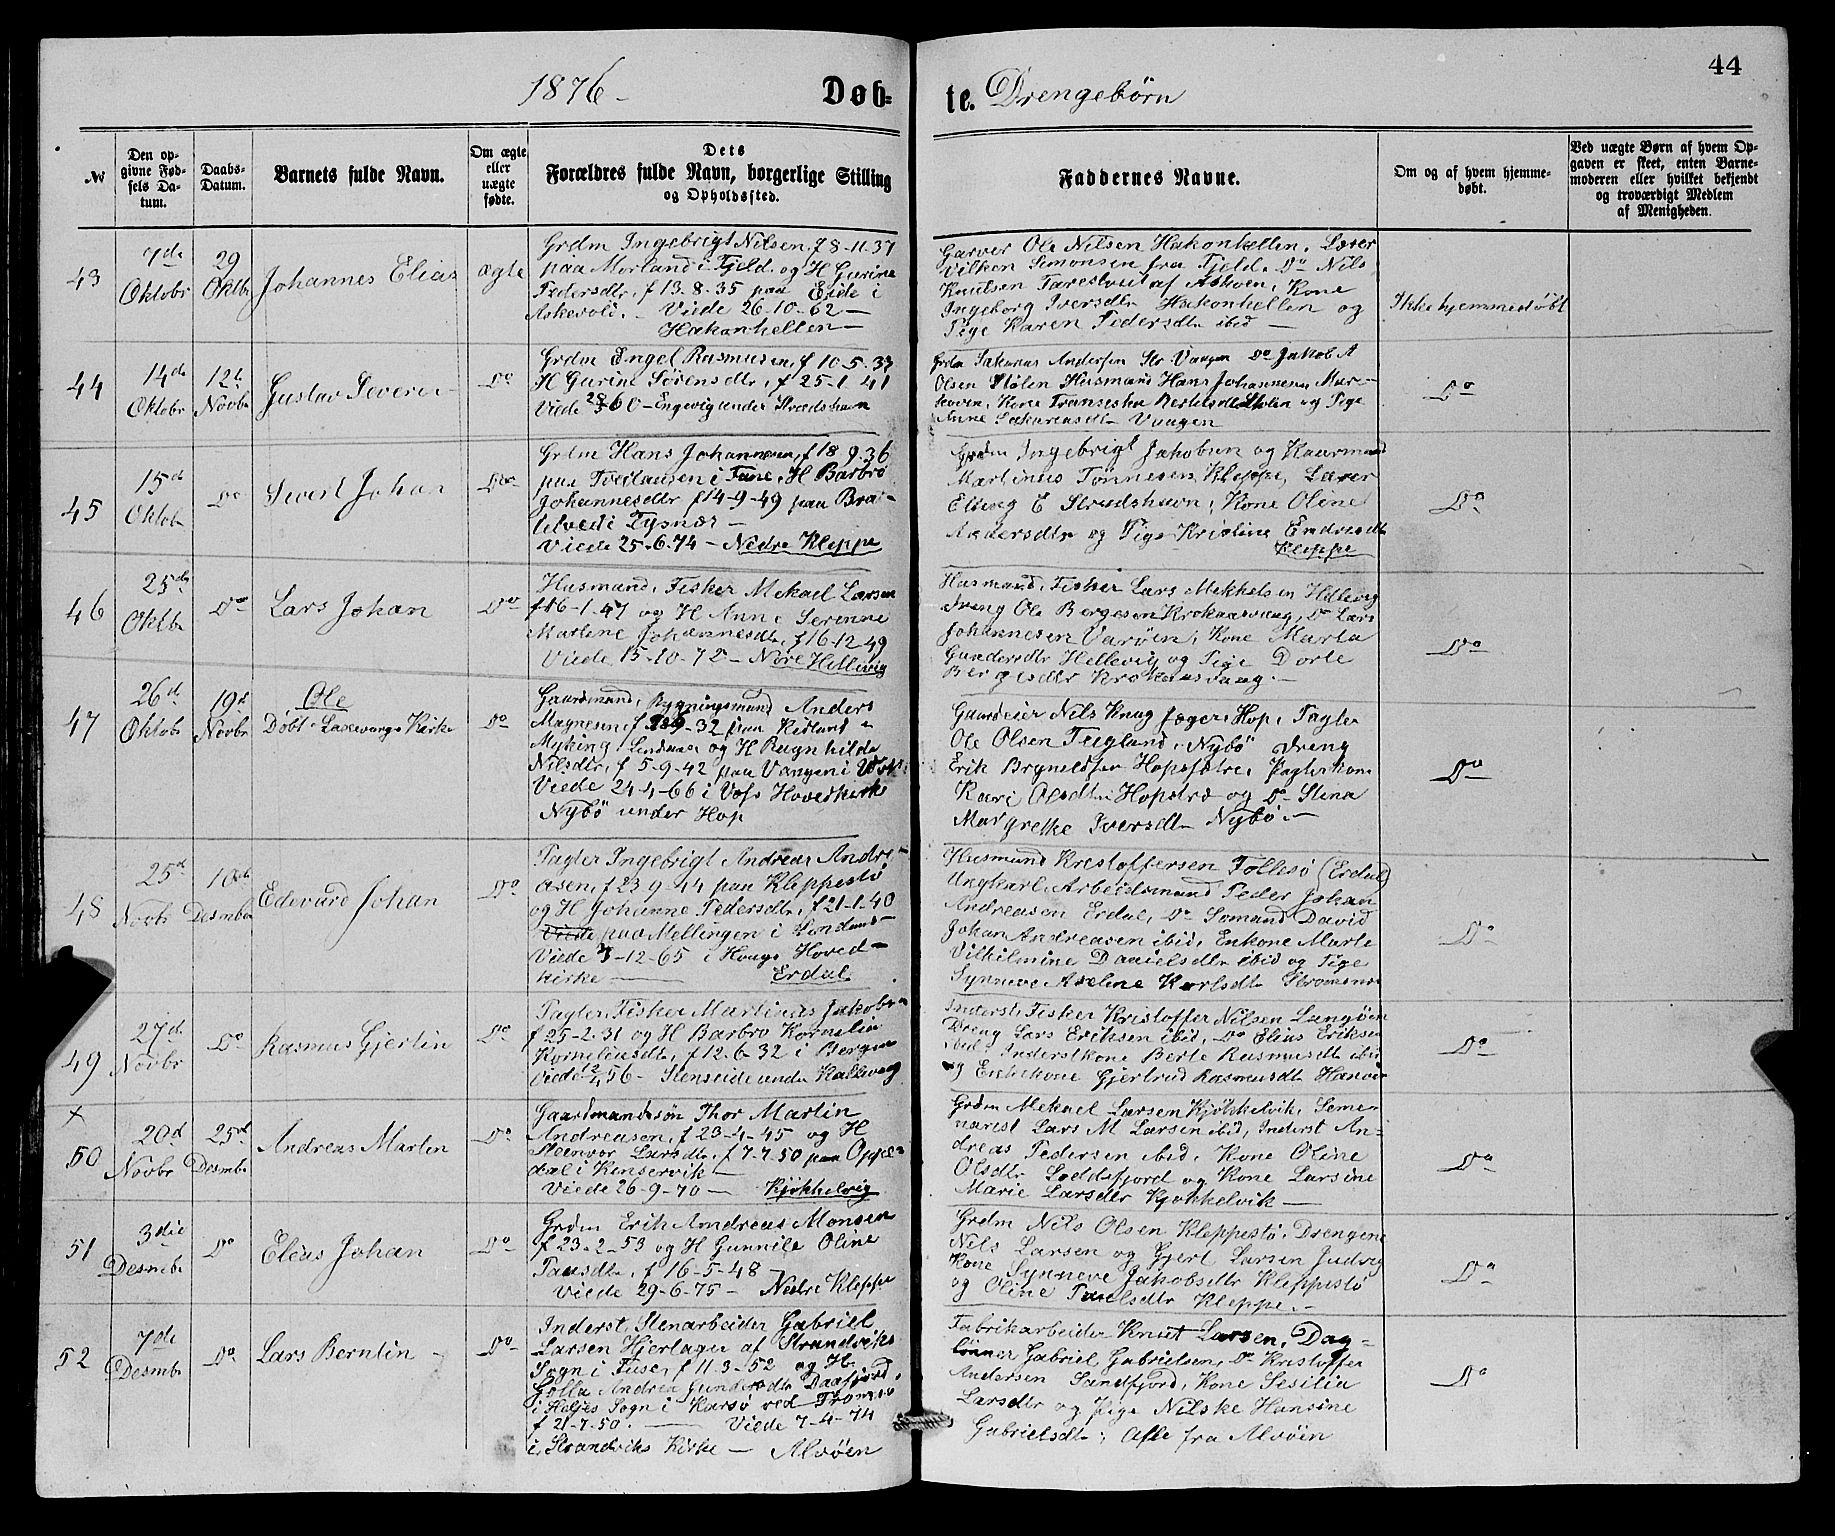 44
1876 –
Døb-
te. Drengebørn
№
Den op-
givne Fød-
sels Da-
tum.
Daabs-
Datum.
Barnets fulde Navn.
Om ægte
eller
uægte
fødte.
Dets
Forældres fulde Navn, borgerlige Stilling
og Opholdssted.
Faddernes Navne.
Om og af hvem hjemme-
døbt.
Ved uægte Børn af hvem Op-
gaven er skeet, enten Barne-
moderen eller hvilket bekjendt
og troværdigt Medlem
af Menigheden.
43
7de
Oktobr
29
Oktbr
Johannes Elias
ægte
Grdm Ingebrigt Nilsen, f 8-11-37
paa Morland i Fjeld og H Gurine
Pedersdtr, f 13-8-35 paa Eide i
Askevold. – Viede 26-10-62 –
Hakonhellen –
Garver Ole Nilsen Hakonhellen, Lærer
Vilken Simonsen fra Fjeld, Do Nils
Knutsen af Askøen, Kone
Ingeborg Iversdtr Hakonhellen og
Pige Karen Pedersdtr ibid –
Ikke hjemmedøbt
44
14de
Oktobr
12te
Novbr
Gustav Severin
Do
Grdm Engel Rasmusen, f 10-5-33
H Gurine Sørensdtr, f 25-1-41
Viede 60 – Engevig under Strudshavn
Grdm Sakarias Andersen Str Vaagen Do Jakob A
Olsen Stølen Husmand Hans Johannesen Mar-
koven, Kone Fransiska Bertelsdtr Stølen og Pige
Anne Sakariasdtr Vaagen
Do
45
15d
Oktobr
Do
Sivert Johan
Do
Grdm Hans Johannesen, f 18-9-36
paa i Fane, H Barbro
Johannesdtr f 14-9-49 paa Bra-
tetvedt i Tysnæs –
Viede 25-6-74 – Nedre Kleppe
Grdm Ingebrigt Jakobsen og Kaarmand
Martinus Tønnesen Kleppe, Lærer
Elling E Strudshavn, Kone Oline
Andersdtr og Pige Kristine Endresdtr
Kleppe
Do
46
25de
Oktbr
Do
Lars Johan
Do
Husmand, Fisker Mekael Larsen
f 16-1-47 og H Anne Serenne
Martine Johannesdtr, f 16-12-49
Viede 15-10-72 – Nore Hellevig
Husmand, Fisker Lars Mekkelsen Hellevig
Dreng Ole Bergesen Krokaasvaag, Do Lars
Johannesen Varøen, Kone Marta
Gundersdtr Hellevig og Pige Dorte
Bergesdtr Krokaasvaag. –
Do
47
26d
Oktobr
19d
Novbr
Ole
Døbt i Laxevaags Kirke
Do
Gaardmand, Bygningsmand Anders
Magnesen, f 9-32 paa
Myking Lindaas og H Ragnhilda
Nilsdtr, f 5-9-42 paa Vangen i Vos
Viede 24-4-66 i Vofs Hovedkirke
Nybø under Hop
Gaardeier Nils Knag Jæger Hop, Pagter
Ole Olsen Teigland, Nybø Dreng
Erik Brynildsen Hopsfætre, Pagterkone
Kari Olsdtr Hopsætre og Do Stena
Margrethe Iversdtr Nybø –
Do
48
25d
Novbr
10de
Desmbr
Edevard Johan
Do
Pagter Ingebrigt Andreas Andre-
asen, f 23-9-44 paa Kleppestø
og H Johanne Pedersdtr, f 21-1-40
Viede paa Mellingen i Lindaas –
Viede 3-12-65 i Hougs Hoved-
kirke – Erdal
Husmand Kristoffersen Follesø (Erdal)
Ungkarl Arbeidsmand Peder Johan
Andreasen Erdal, Do Sømand David
Johan Andreasen ibid, Enkone Marte
Vilhilmine Danielsdtr ibid og Pige
Synneve Axeline Karlsdtr Strømsnes
Do
49
27d
Novbr
Do
Rasmus Gjertin
Do
Pagter, Fisker Martinus Jakobsen
f 25-2-31 og H Barbro Kornelia
Korneliusdtr, f 12-6-32 i Bergen
Viede 12/4 56 – Stenseide under Kallevaag
Inderst, Fisker Kristoffer Nilsen Langøen
Dreng Lars Eriksen ibid, Do Elias Eriksen
ibid, Inderstkone Berte Rasmusdtr ibid
og Enkekone Gjertrud Rasmusdtr Hanøen
Do
×
50
20d
Novbr
25d
Desmbr
Andreas Martin
Do
Gaardmandssøn Thor Martin
Andreasen, f 23-4-45 og H
Steenvor Larsdtr, f 7-7-50 paa Oppe-
dal i Kinservik –
Viede 26-9-70 – Kjøkkelvig
Grdm Mekael Larsen Kjøkkelvik, Seme-
narist Lars M Larsen ibid, Inderst An-
dreas Pedersen ibid, Kone Oline
Olsdtr Loddefjord og Kone Larsine
Marie Larsdtr Kjøkkelvik –
Do
51
3die
Desmbr
Do
Elias Johan
Do
Grdm Erik Andreas Monsen
f 23-2-53 og H Gunnile Oline
Paulsdtr, f 16-5-48
Viede 29-6-75 – Nedre Kleppe
Grdm Nils Olsen Kleppestø, Drengene
Nils Larsen og Gjert Larsen
Kone Synneve Jakobsdtr Kleppestø
og Oline Paulsdtr Kleppe. –
Do
52
7de
Desmbr
Do
Lars Berntin –
Do
Inderst, Stenarbeider Gabriel
Larsen Hjertager af Strandviks
Sogn i Fuse, f 11-3-52 og H
Golla Andrea Gundersdtr Daafjord
i Helgø Sogn i Karsø ved Tromsø
f 21-7-50. – Viede 7-4-74
i Strandviks Kirke – Alvøen
Fabrikarbeider Knut Larsen, Dag-
lønner Gabriel Gabrielsen, Do Kristoffer
Andersen Sandfjord, Kone Sesilia
Larsdtr og Pige Nilske Hansine
Gabrielsdtr, Alle fra Alvøen
Do